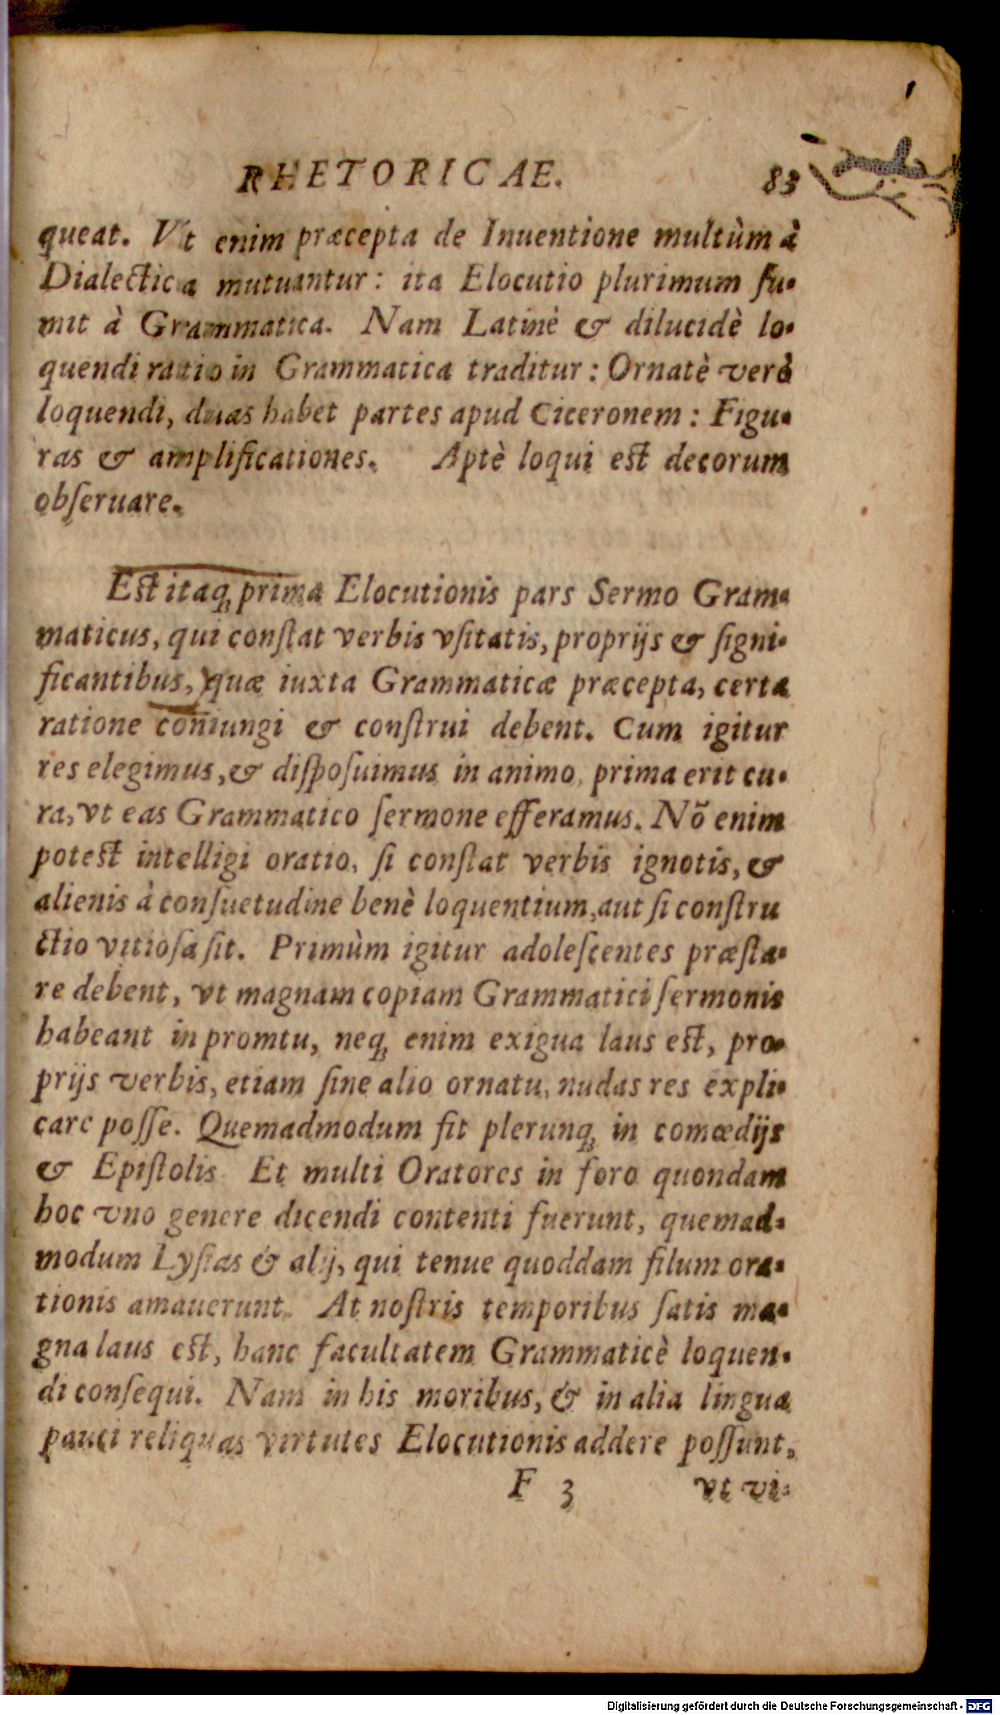 RHETORICAE. 83
queat. Vt enim præcepta de Inuentione multùm à
Dialectica mutuantur: ita Elocutio plurimum ſu-
mit à Grammatica. Nam Latinè & dilucidè lo-
quendi ratio in Grammatica traditur: Ornatè verò
loquendi, duas habet partes apud Ciceronem: Figu-
ras & amplificationes. Aptè loqui eſt decorum
obſeruare.
Eſt itaq; prima Elocutionis pars Sermo Gram-
maticus, qui conſtat verbis vſitatis, proprijs & ſigni-
ficantibus, quæ iuxta Grammaticæ præcepta, certa
ratione coniungi & conſtrui debent. Cum igitur
res elegimus, & diſpoſuimus in animo, prima erit cu-
ra, vt eas Grammatico ſermone efferamus. Nõ enim
poteſt intelligi oratio, ſi conſtat verbis ignotis, &
alienis à conſuetudine benè loquentium, aut ſi conſtru
ctio vitioſa ſit. Primùm igitur adoleſcentes præſta-
re debent, vt magnam copiam Grammatici ſermonis
habeant in promtu, neq; enim exigua laus eſt, pro-
prijs verbis, etiam ſine alio ornatu, nudas res expli-
care poſſe. Quemadmodum fit plerunq; in comœdijs
& Epiſtolis Et multi Oratores in foro quondam
hoc vno genere dicendi contenti fuerunt, quemad-
modum Lyſias & alij, qui tenue quoddam filum ora-
tionis amauerunt. At noſtris temporibus ſatis ma-
gna laus eſt, hanc facultatem Grammaticè loquen-
di conſequi. Nam in his moribus, & in alia lingua
pauci reliquas virtutes Elocutionis addere poſſunt,
F 3 vt vi-
Digitalisierung gefördert durch die Deutsche Forschungsgemeinschaft - DFG